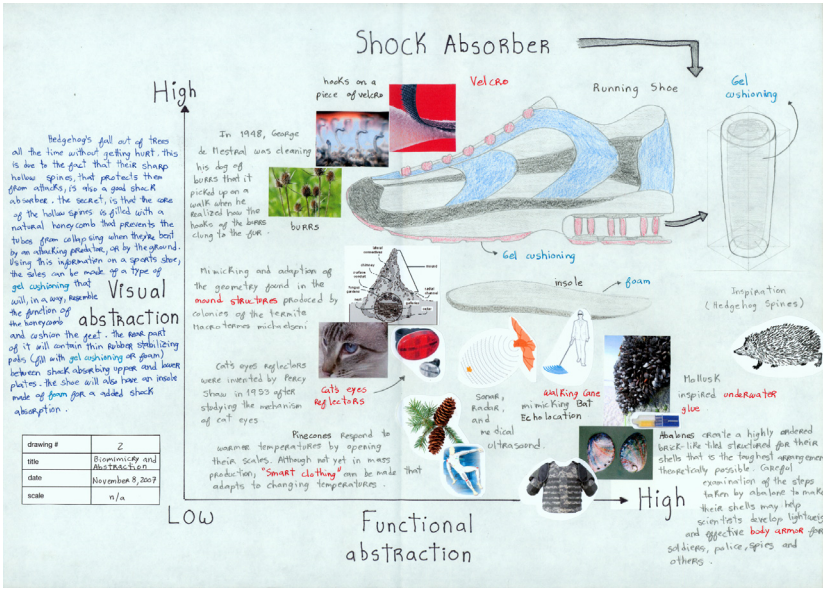 Shock Absorber
High
hooks on a
piece of velcro
Velcro
Running Shoe
Gel
cushioning
Hedgehog's fall out of trees
all the time without getting hurt. this
is due to the fact that their sharp
hollow spines, that protects them
from attacks, is also a good shock
absorber. the secret, is that the core
of the hollow spines is filled with a
natural honeycomb that prevents the
tubes from collapsing when they're bent
by an attacking predator, or by the ground.
Using this information on a sports shoe,
the soles can be made of a type of
gel cushioning that
will, in a way, resemble
the function of
the honeycomb
and cushion the feet. the rear part
of it will contain thin rubber stabilizing
pods (fill with gel cushioning or foam)
between shock absorbing upper and lower
plates. the shoe will also have an insole
made of foam for a added shock
absorption.
Visual
abstraction
In 1948, George
de Mestral was cleaning
his dog of
burrs that it
picked up on a
walk when he
realized how the
hooks of the burrs
clung to the fur.
burrs
Gel cushioning
insole
foam
Inspiration
(Hedgehog Spines)
Mimicking and adaption of
the geometry found in the
mound structures produced by
colonies of the termite
Macrotermes michaelseni
Cat's eyes reflectors
were invented by Percy
Shaw in 1953 after
studying the mechanism
of cat eyes
Cat's eyes
reflectors
Sonar,
Radar,
and
medical
ultrasound.
Walking Cane
mimicking Bat
Echolocation
Mollusk
inspired underwater
glue
Pinecones respond to
warmer temperatures by opening
their scales. Although not yet in mass
production, "Smart clothing" can be made that
adapts to changing temperatures.
Abalones create a highly ordered
brick-like tiled structured for their
shells that is the toughest arrangement
theoretically possible. Careful
examination of the steps
taken by abalone to make
their shells may help
scientists develop lightweig
and effective body armor for
soldiers, police, spies and
others.
drawing # 2
title Biomimicry and
Abstraction
date November 8, 2007
scale n/a
Low
Functional
abstraction
High